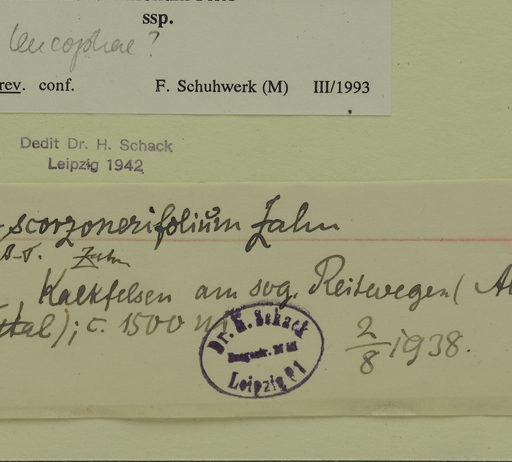 ssp.
leucophae?
rev. conf. F. Schuhwerk (M) III/1993
Dedit Dr. H. Schack
Leipzig 1942
scorzonerifolium Zahn
Zahn
Kalkfelsen am sog. Reitewegen (Al
tal); c. 1500 m
2/8 1938.
Dr. H. Schack
Leipzig